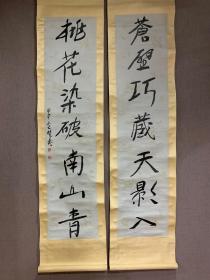 蒼壁巧藏天影入
桃花染破南山青